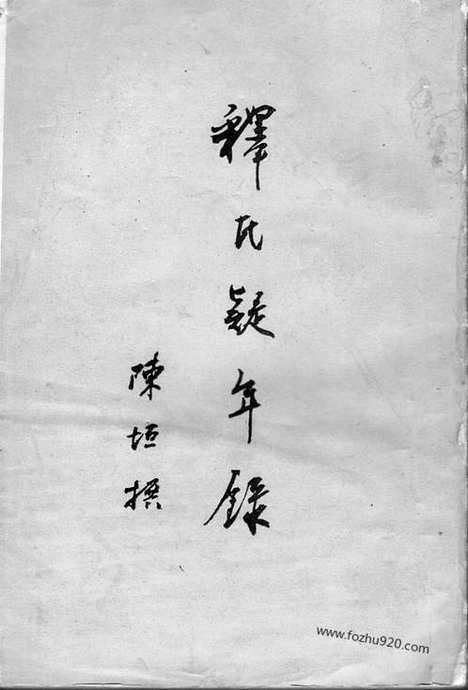 釋氏疑年錄
陳垣撰
www.fozhu920.com